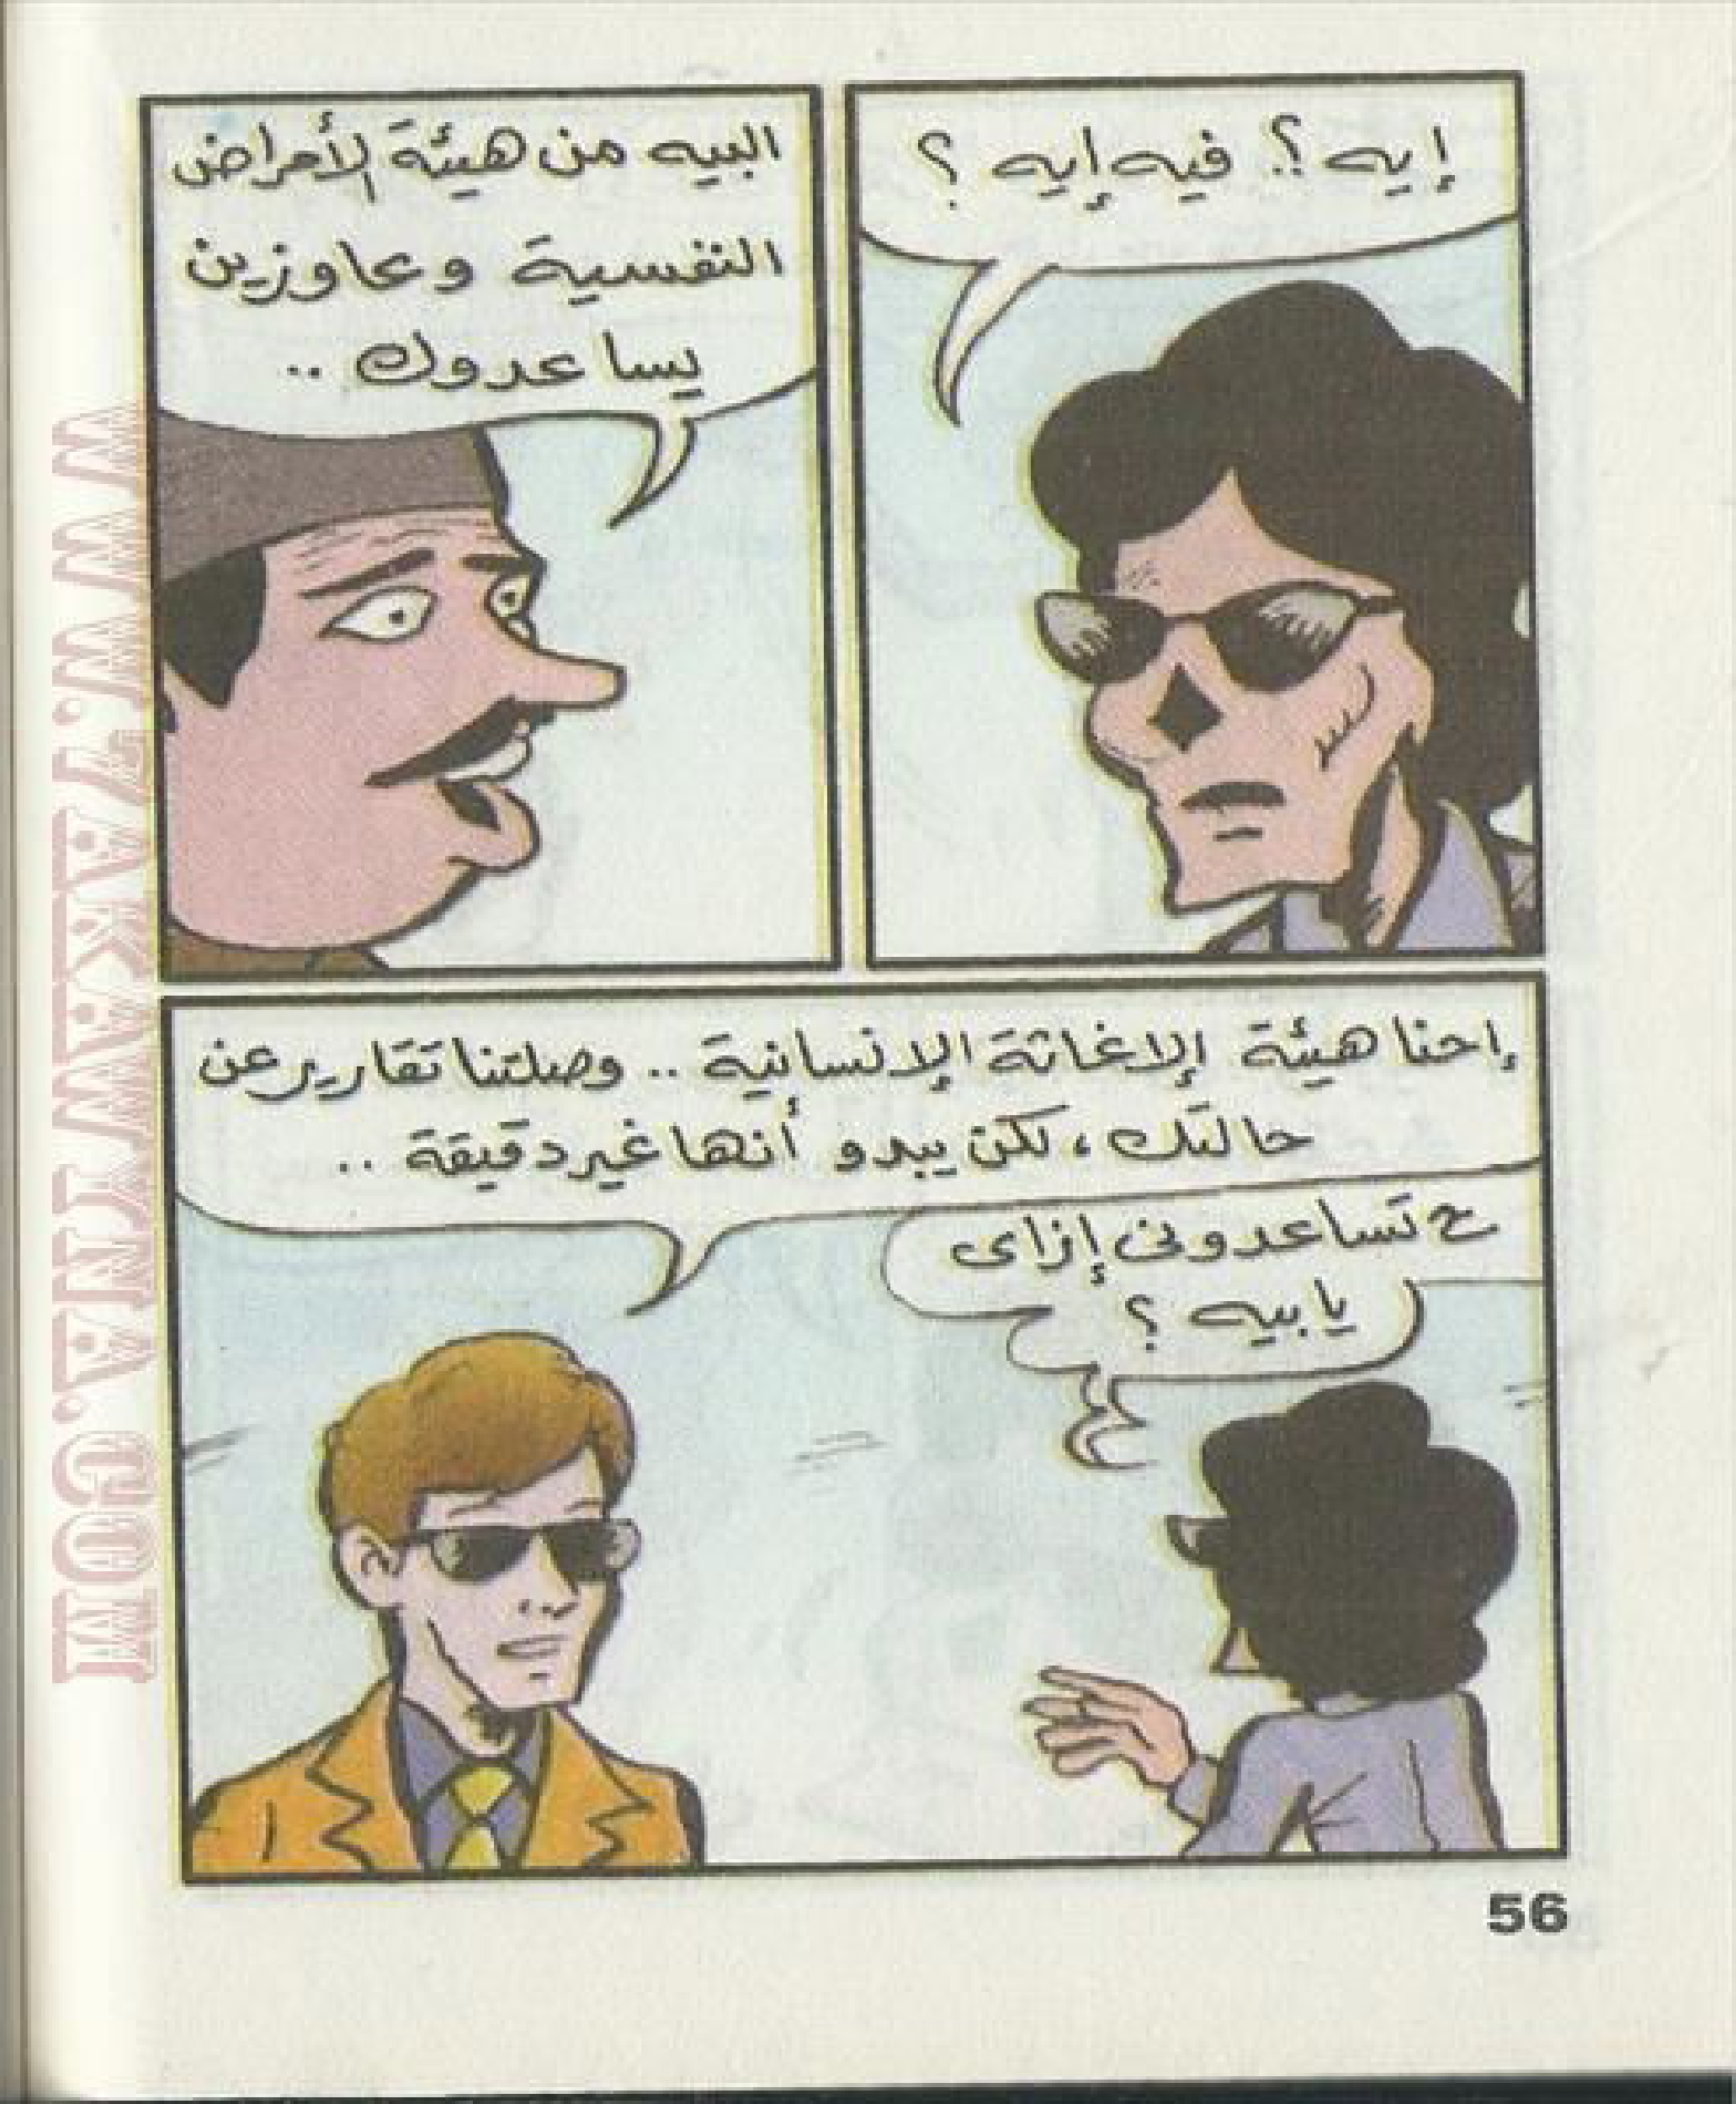 إيه؟! فيه إيه؟
البيه من هيئة الأمراض
النفسية وعاوزين
يساعدوك ..
إحنا هيئة الإغاثة الإنسانية .. وصلتنا تقارير عن
حالتك، لكن يبدو أنها غير دقيقة ..
ح تساعدونى إزاى
يا بيه ؟
56
WWW.TAKAWINA.COM